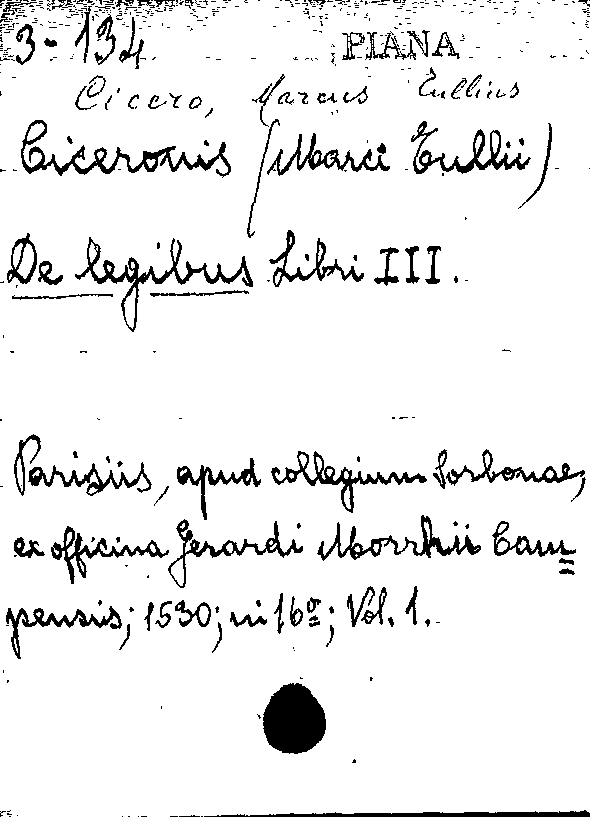 3-134 PIANA
Cicero, Marcus Tullius
Ciceronis (Marci Tullii)
De legibus Libri III.
Parisiis, apud collegium Sorbonae,
ex officina Gerardi Morrhii Cam=
pensis; 1530; in 16º; Vol. 1.